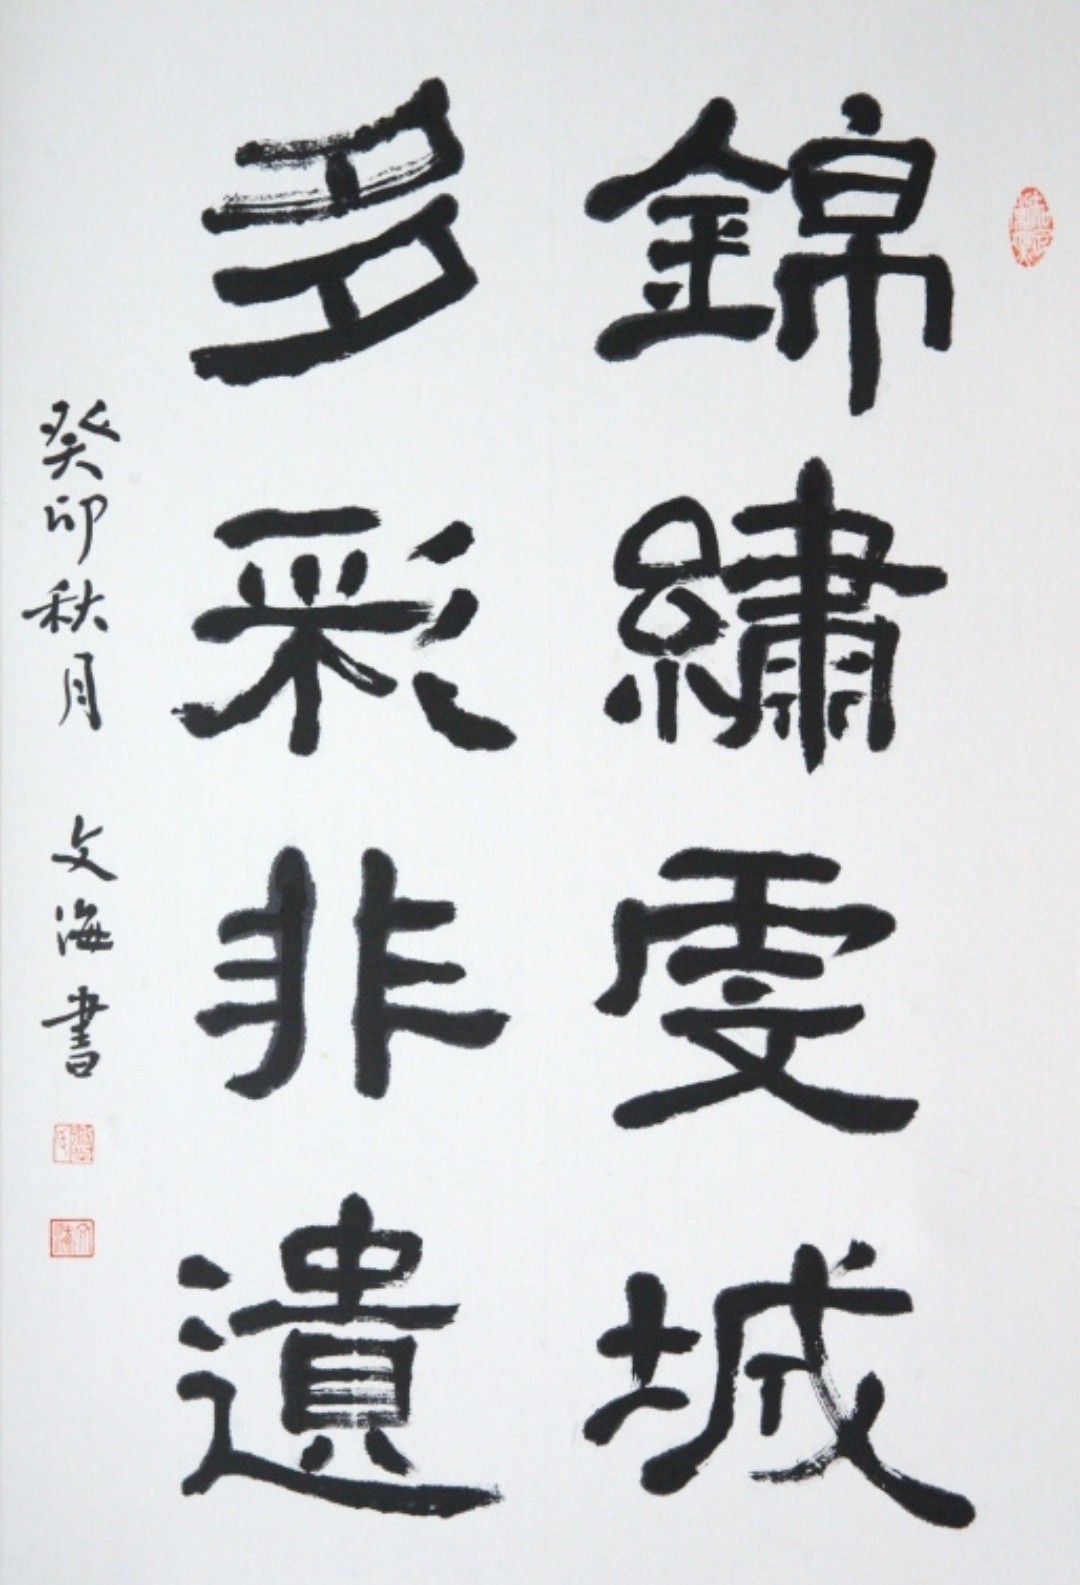 錦繡雯城
多彩非遺
癸卯秋月 文海書